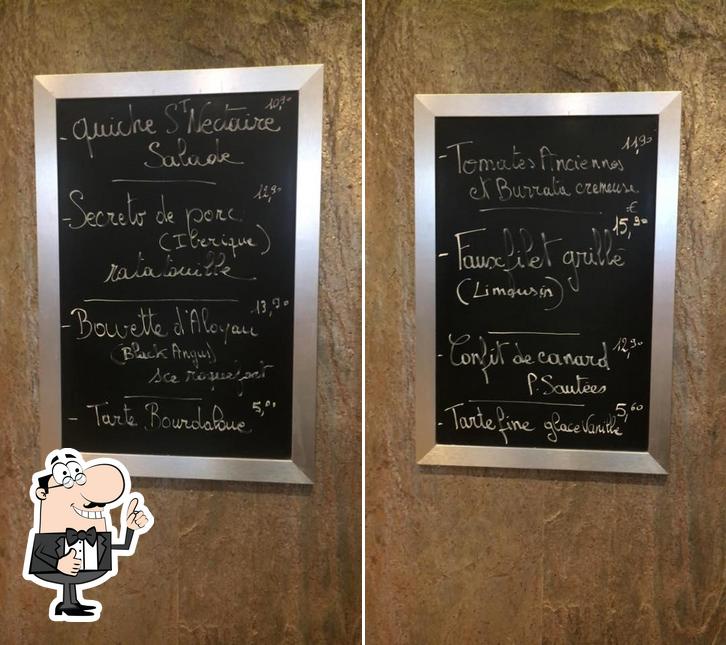 10,90
- quiche St Nectaire
Salade
12,90
- Secreto de porc
(Iberique)
ratatouille
13,90
- Bavette d'Aloyau
(Black Angus)
sce roquefort
- Tarte Bourdaloue 5,00
11,90
- Tomates Anciennes
et Burrata cremeuse
€
15,90
- Faux filet grillé
(Limousin)
- Confit de canard 12,90
P. Sautées
- Tarte fine glace Vanille 5,60